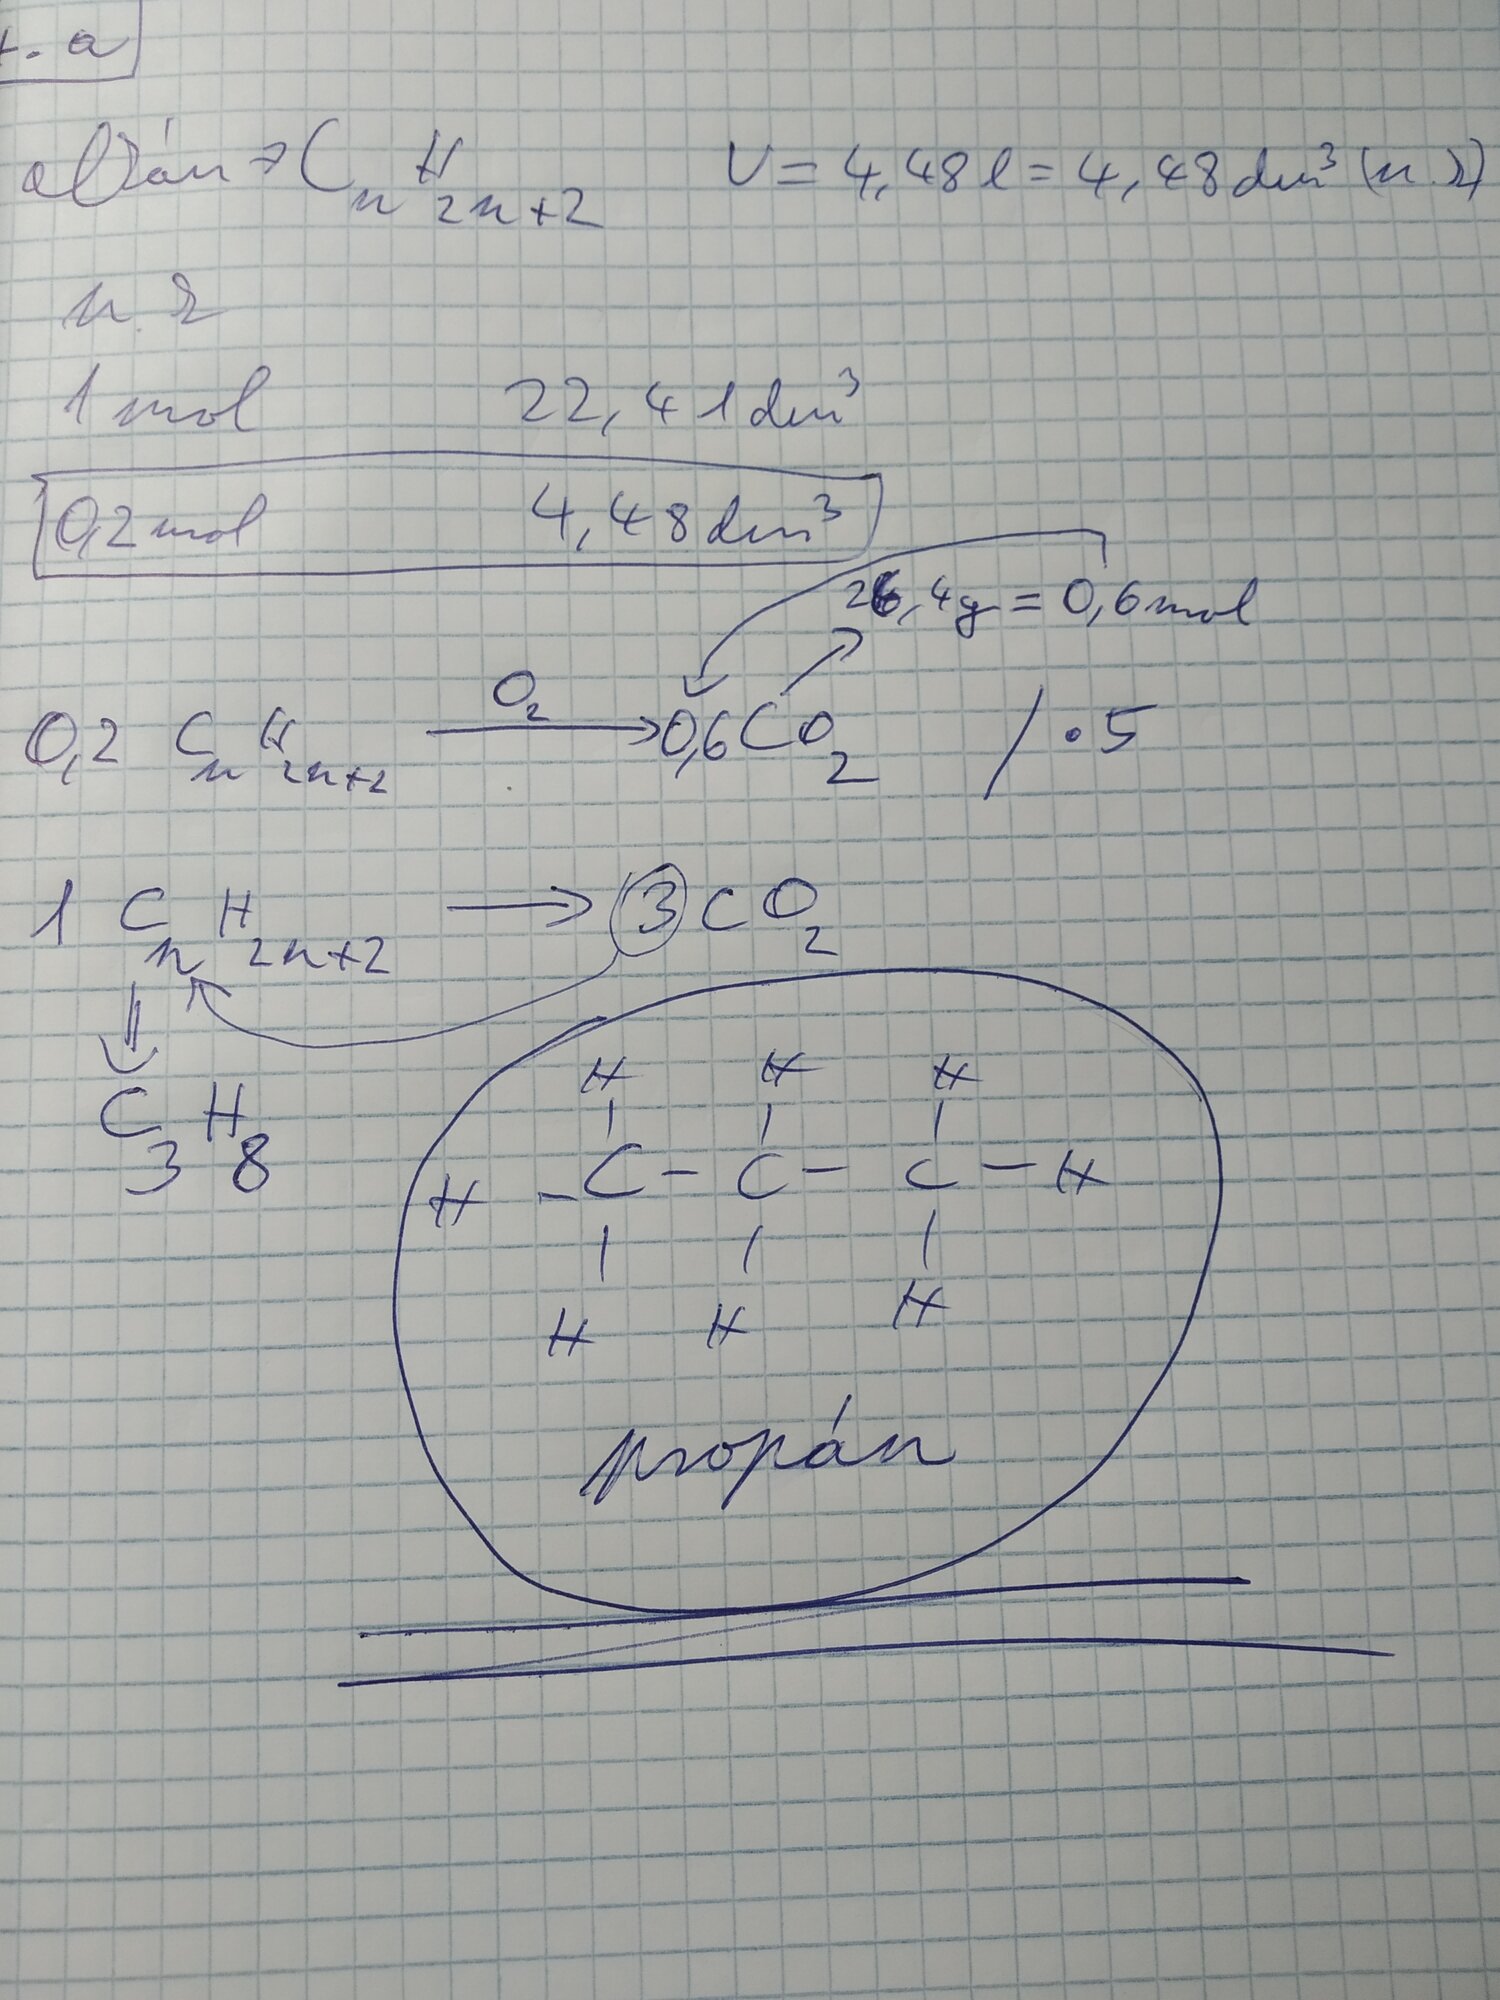 . a
alkán → CnH2n+2 V = 4,48 l = 4,48 dm³ (n. k)
n. k
1 mol 22,41 dm³
0,2 mol 4,48 dm³
26,4 g = 0,6 mol
O2
0,2 CnH2n+2 → 0,6 CO2 / • 5
1 CnH2n+2 → 3 CO2
C3H8
H H H
H - C - C - C - H
H H H
propán